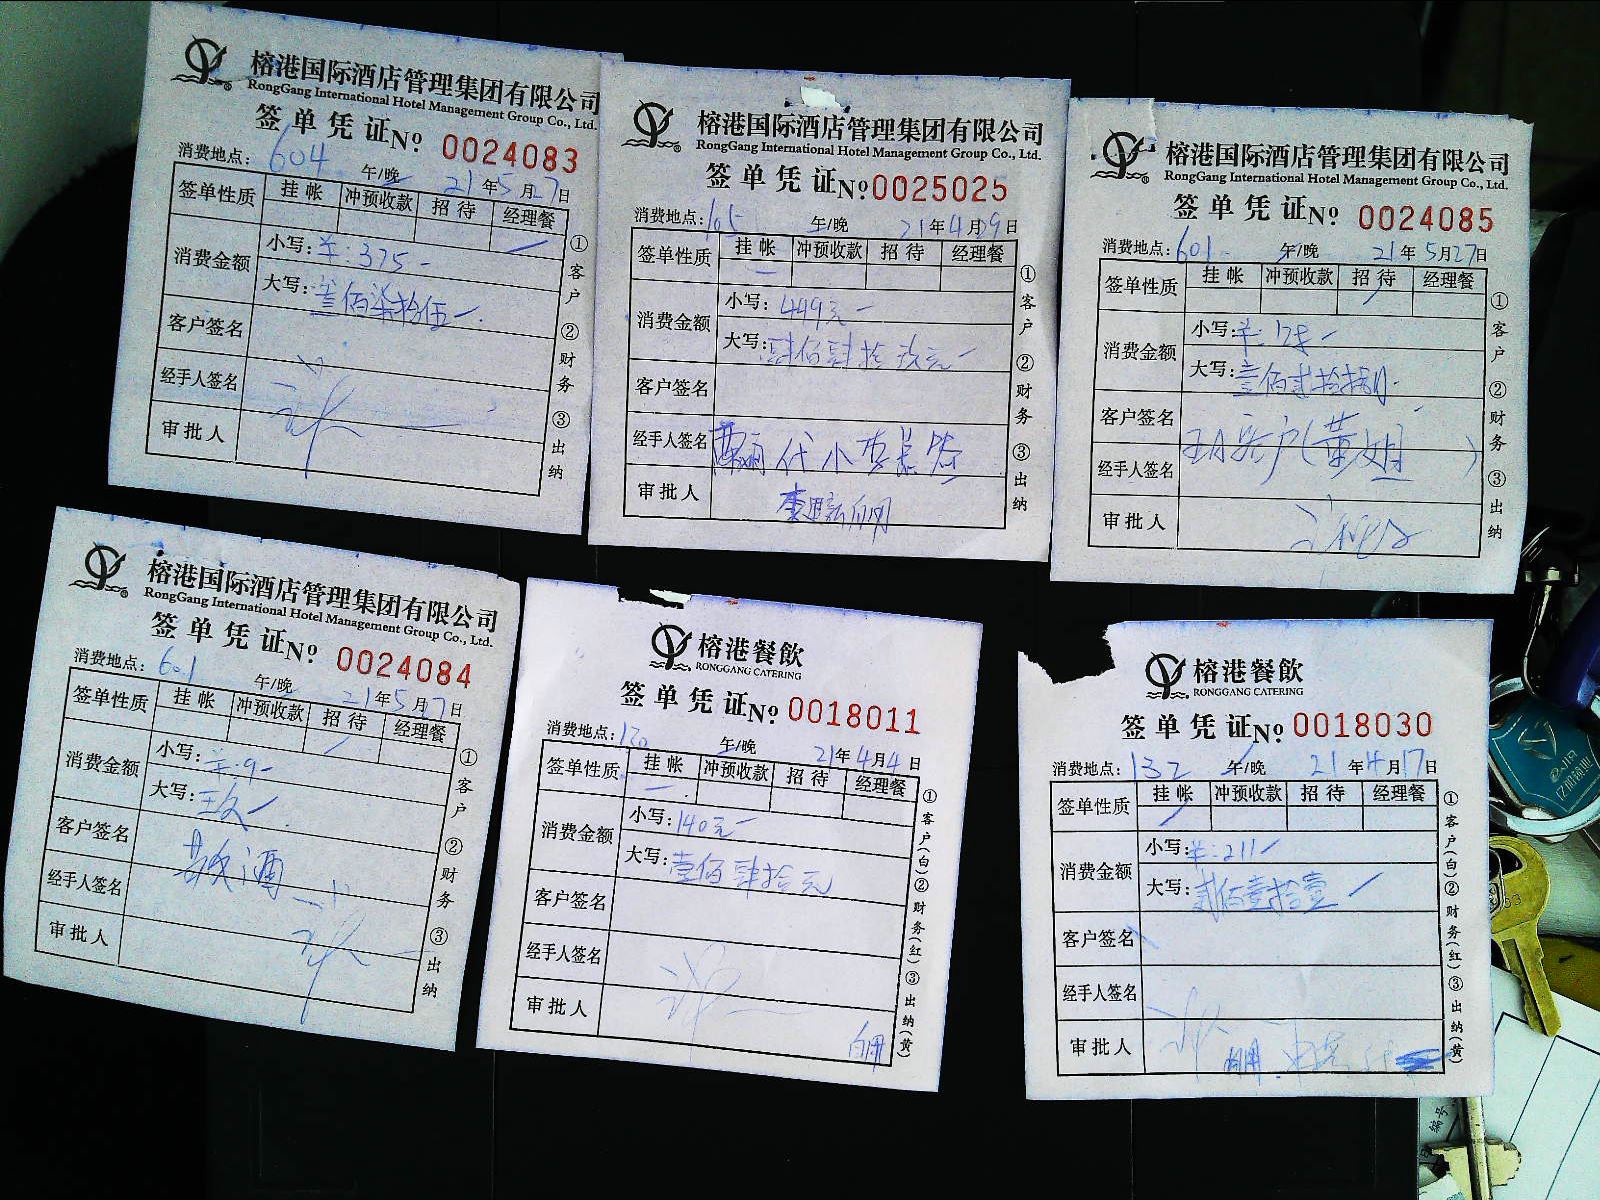 榕港国际酒店管理集团有限公司
RongGang International Hotel Management Group Co., Ltd.
签单凭证 No. 0024083
消费地点: 604 午/晚 21年5月27日
签单性质 挂帐 冲预收款 招待 经理餐
消费金额 小写: 375
大写:
客户签名
经手人签名
审批人
①客户 ②财务 ③出纳
榕港国际酒店管理集团有限公司
RongGang International Hotel Management Group Co., Ltd.
签单凭证 No. 0025025
消费地点: 105 午/晚 21年4月29日
签单性质 挂帐 冲预收款 招待 经理餐
消费金额 小写: 449元
大写: 肆佰肆拾玖元
客户签名
经手人签名 代小李总签
审批人 自用
①客户 ②财务 ③出纳
榕港国际酒店管理集团有限公司
RongGang International Hotel Management Group Co., Ltd.
签单凭证 No. 0024085
消费地点: 601 午/晚 21年5月27日
签单性质 挂帐 冲预收款 招待 经理餐
消费金额 小写:
大写:
客户签名
经手人签名
审批人
①客户 ②财务 ③出纳
榕港国际酒店管理集团有限公司
RongGang International Hotel Management Group Co., Ltd.
签单凭证 No. 0024084
消费地点: 601 午/晚 21年5月27日
签单性质 挂帐 冲预收款 招待 经理餐
消费金额 小写: 9
大写:
客户签名 敬酒
经手人签名
审批人
①客户 ②财务 ③出纳
榕港餐飲
RONGGANG CATERING
签单凭证 No. 0018011
消费地点: 130 午/晚 21年4月4日
签单性质 挂帐 冲预收款 招待 经理餐
消费金额 小写: 140元
大写: 壹佰肆拾元
客户签名
经手人签名
审批人 自用
①客户(白) ②财务(红) ③出纳(黄)
榕港餐飲
RONGGANG CATERING
签单凭证 No. 0018030
消费地点: 132 午/晚 21年4月17日
签单性质 挂帐 冲预收款 招待 经理餐
消费金额 小写: 211
大写: 贰佰壹拾壹
客户签名
经手人签名
审批人
①客户(白) ②财务(红) ③出纳(黄)
编号